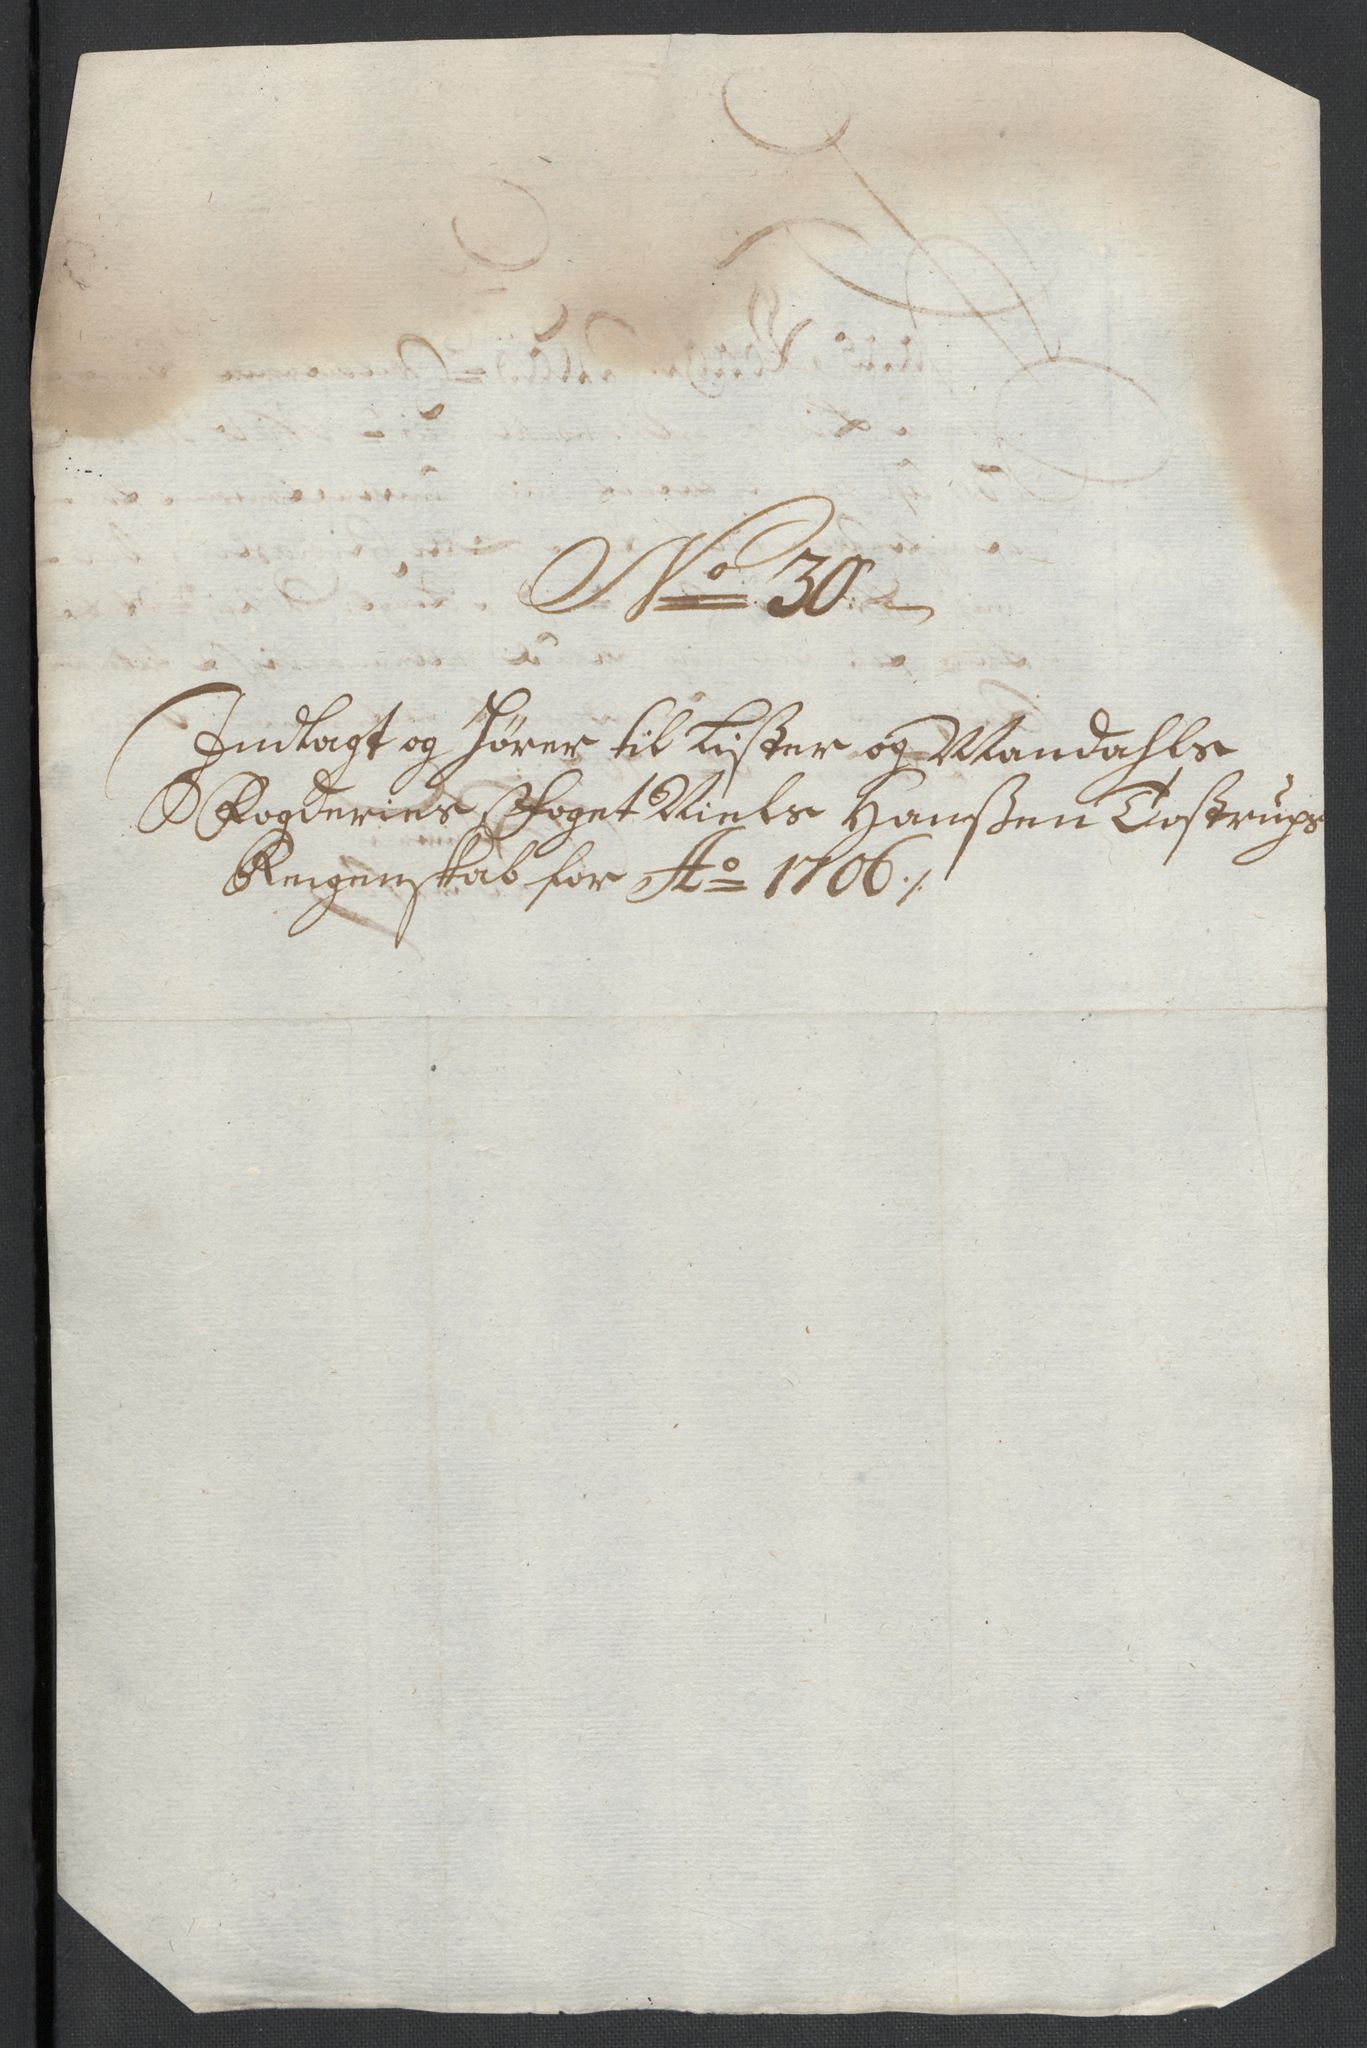 No 30
Indlagt og hører til Lister og Mandahls
Fogderies Foget Niels Hanßen Tostrups
Regenskab for Ao 1706 ./.